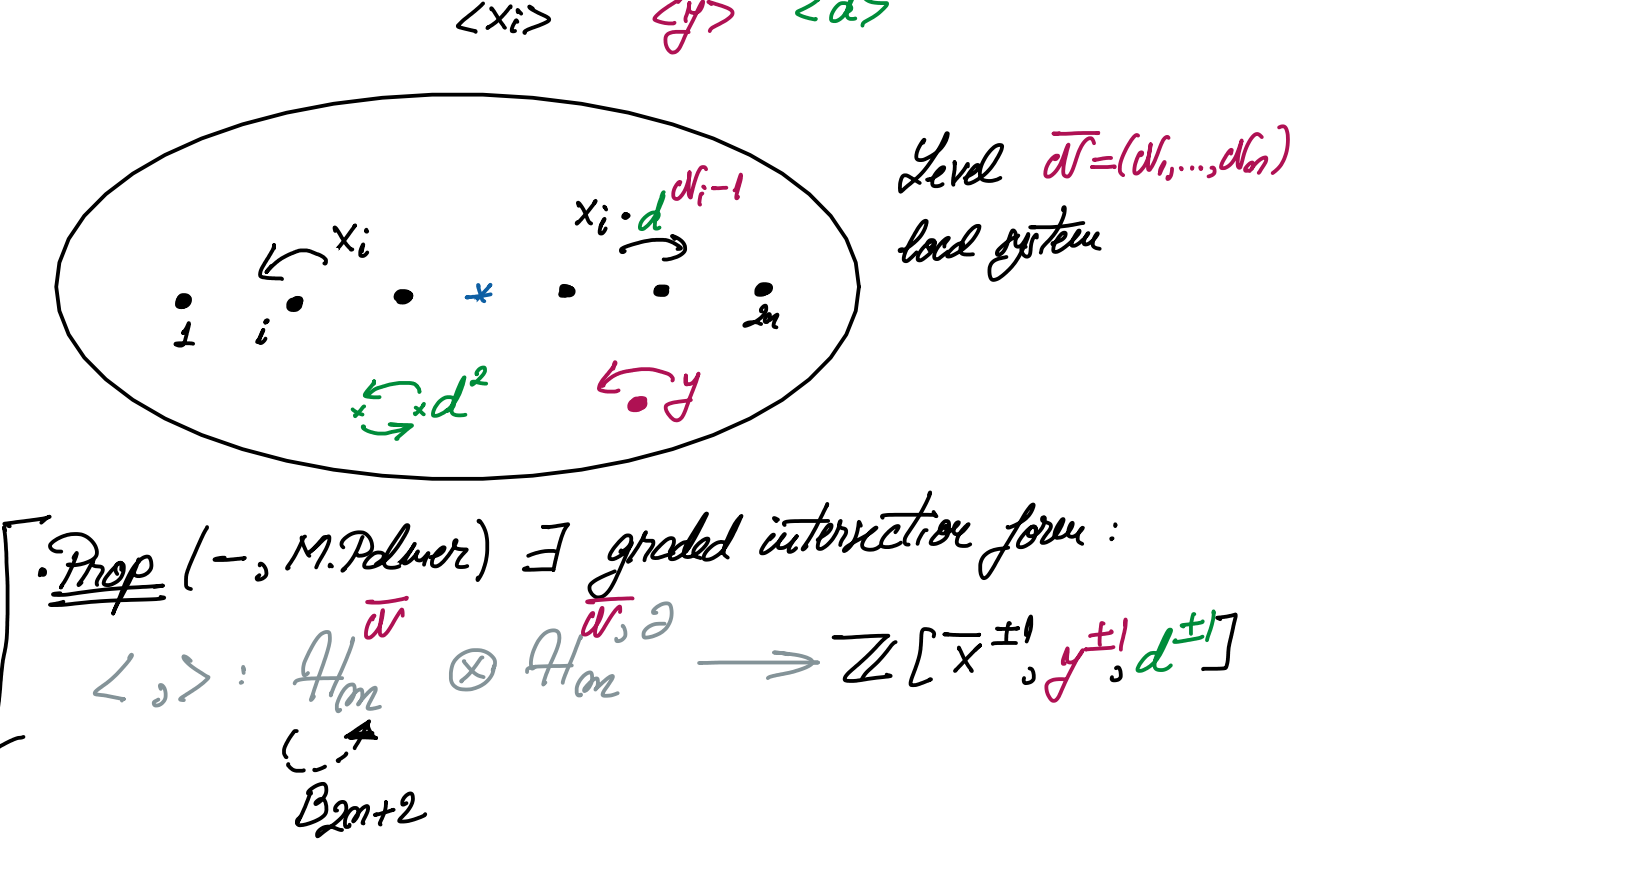 <x_i> <y> <d>
Level N̄=(N₁,...,Nₙ)
local system
x_i
x_i · d^{N_i−1}
* 
1 i 2n
d²
y
· Prop (−, M.Palmer) ∃ graded intersection form :
< , > : H_m^{N̄} ⊗ H_m^{N̄,∂} ⟶ ℤ[x̄^{±1}, y^{±1}, d^{±1}]
B_{2n+2}